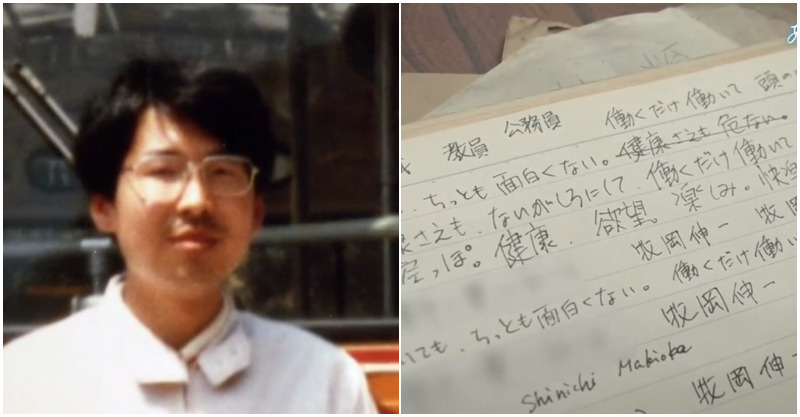 教員 公務員 働くだけ働いて 頭の
、ちっとも面白くない。健康さえも危ない。
さえも、ないがしろにして、働くだけ働いて
っぽ。健康、欲望。楽しみ。快楽
牧岡伸一 牧岡
いても、ちっとも面白くない。働くだけ働い
牧岡伸一
Shinichi Makioka
牧岡伸一